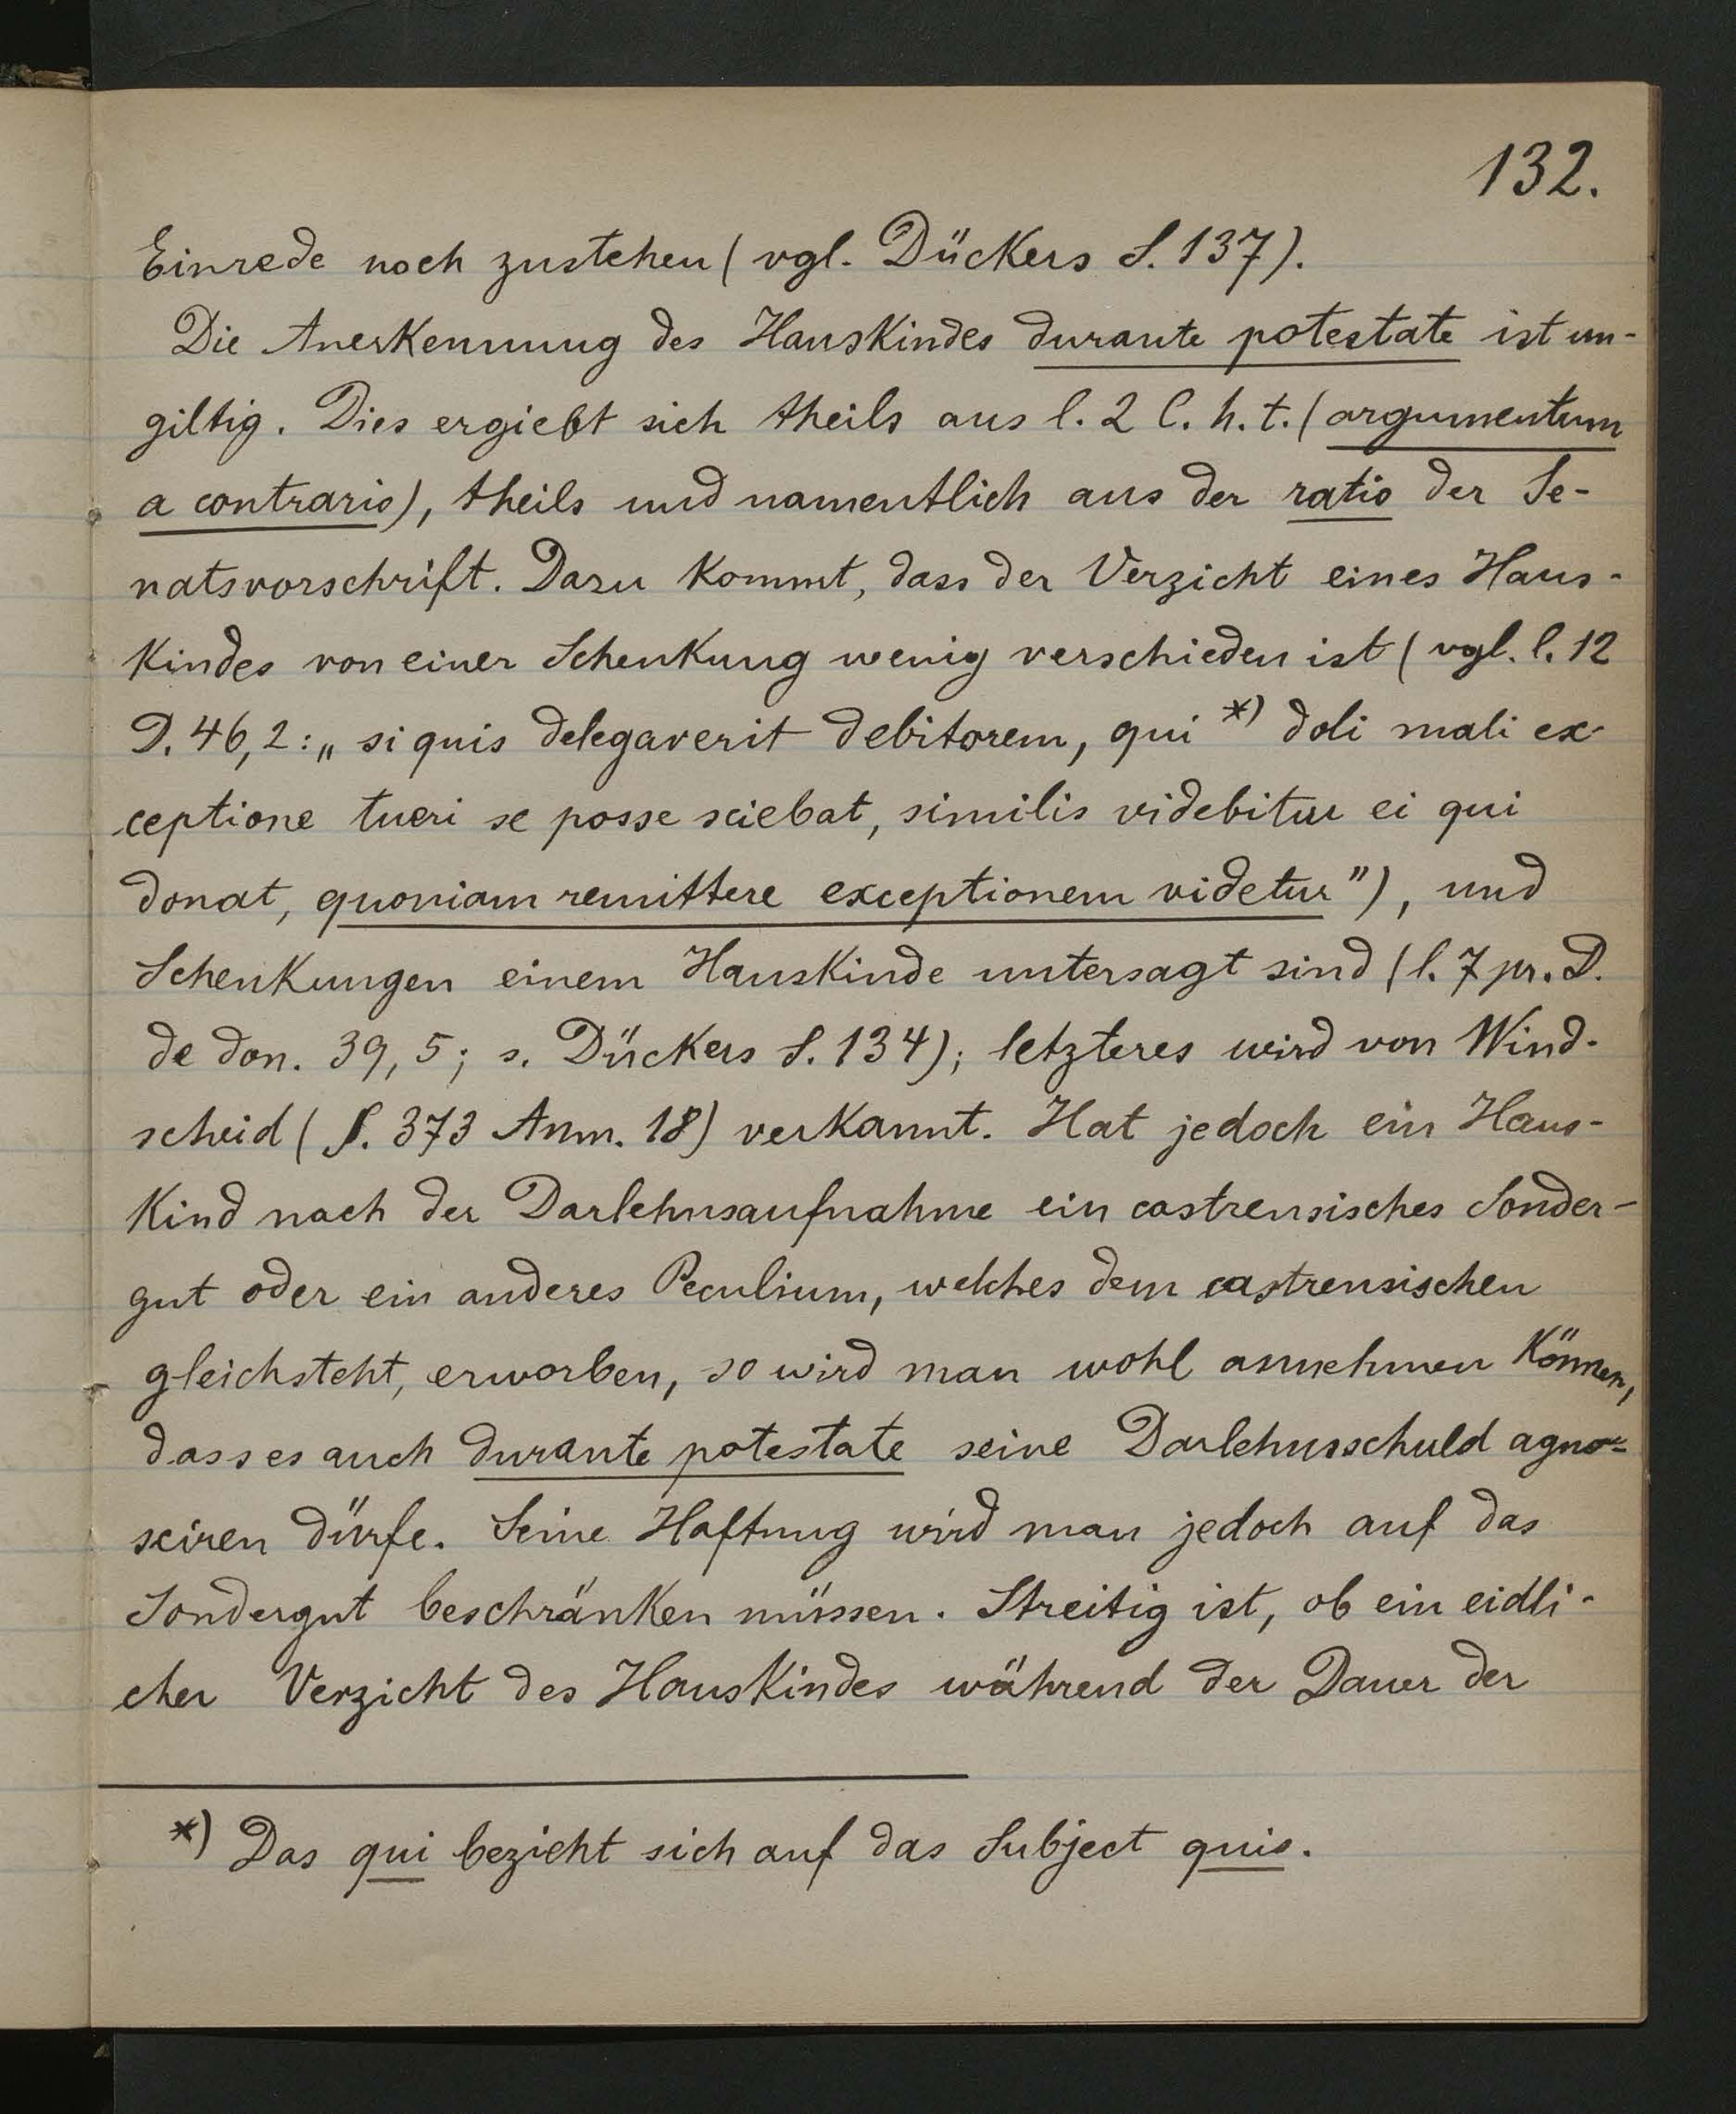 132.
Einrede noch zustehen (vgl. Dückers S. 137).
Die Anerkennung des Hauskindes durante potestate ist un-
giltig. Dies ergiebt sich theils aus l. 2 C. h. t. (argumentum
a contrario), theils und namentlich aus der ratio der Se-
natsvorschrift. Dazu kommt, dass der Verzicht eines Haus-
kindes von einer Schenkung wenig verschieden ist (vgl. l. 12
D. 46,2: „si quis delegaverit debitorem, qui *) doli mali ex-
ceptione tueri se posse sciebat, similis videbitur ei qui
donat, quoniam remittere exceptionem videtur"), und
Schenkungen einem Hauskinde untersagt sind (l. 7 pr. D.
de don. 39, 5; s. Dückers S. 134); letzteres wird von Wind-
scheid (§. 373 Anm. 18) verkannt. Hat jedoch ein Haus-
kind nach der Darlehnsaufnahme ein castrensisches Sonder-
gut oder ein anderes Peculium, welches dem castrensischen
gleichsteht, erworben, so wird man wohl annehmen können,
dass es auch durante potestate seine Darlehnsschuld agno-
sciren dürfe. Seine Haftung wird man jedoch auf das
Sondergut beschränken müssen. Streitig ist, ob ein eidli-
cher Verzicht des Hauskindes während der Dauer der
*) Das qui bezieht sich auf das Subject quis.